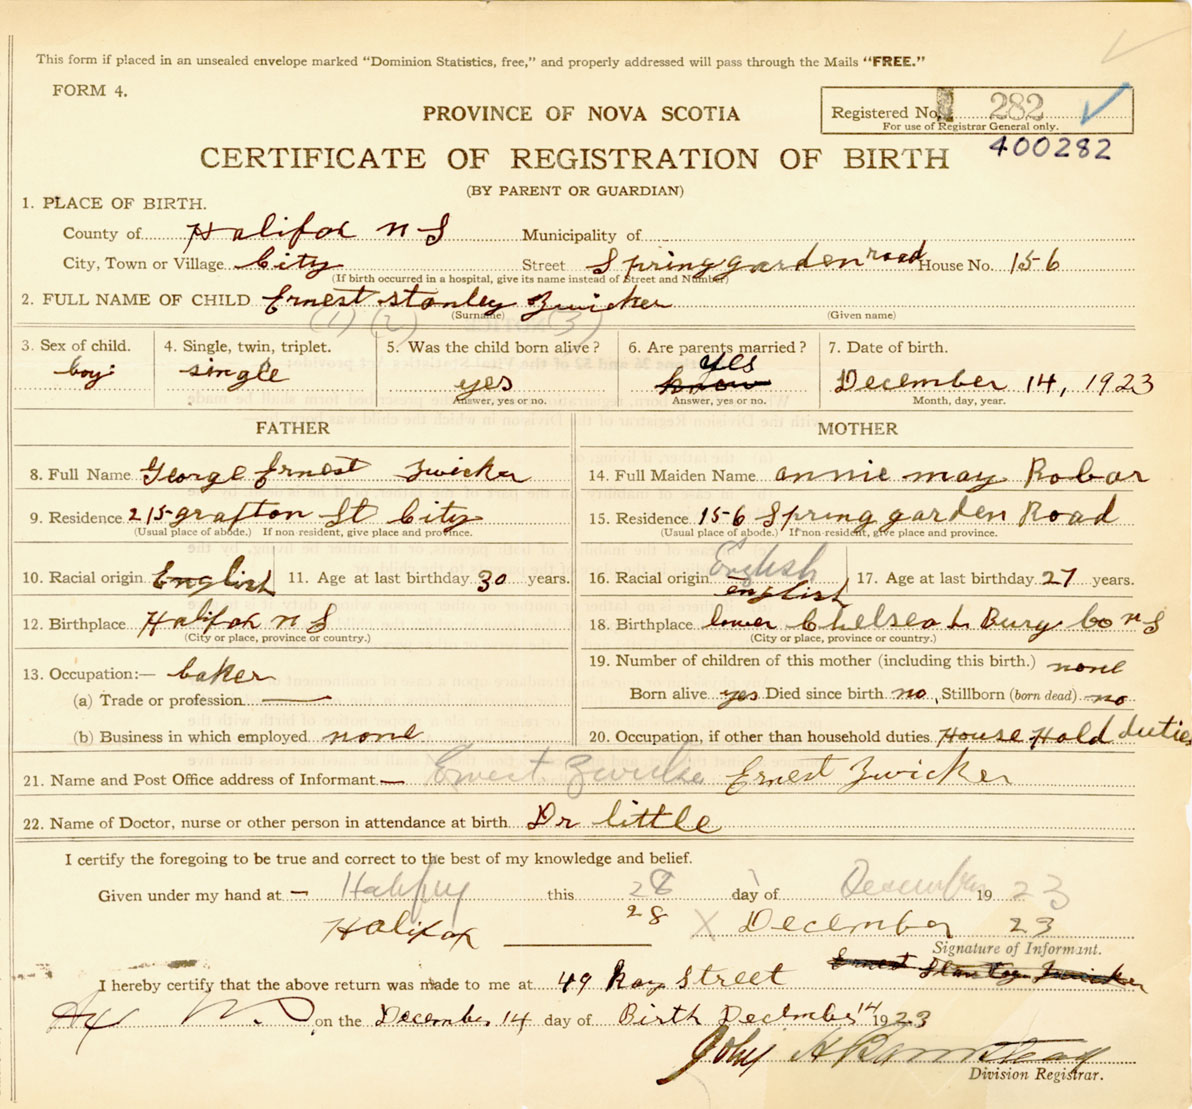 This form if placed in an unsealed envelope marked "Dominion Statistics, free," and properly addressed will pass through the Mails "FREE."
FORM 4.
PROVINCE OF NOVA SCOTIA
Registered No. 282
For use of Registrar General only.
400282
CERTIFICATE OF REGISTRATION OF BIRTH
(BY PARENT OR GUARDIAN)
1. PLACE OF BIRTH.
County of Halifax N S Municipality of
City, Town or Village City Street Springgarden road House No. 156
(If birth occurred in a hospital, give its name instead of Street and Number)
2. FULL NAME OF CHILD Ernest Stanley Zwicker
(Surname) (Given name)
(1) (2) (3)
3. Sex of child. 4. Single, twin, triplet. 5. Was the child born alive? 6. Are parents married? 7. Date of birth.
boy single yes yes December 14, 1923
Answer, yes or no. Answer, yes or no. Month, day, year.
FATHER MOTHER
8. Full Name George Ernest Zwicker 14. Full Maiden Name annie may Robar
9. Residence 215 grafton St City 15. Residence 156 Spring garden Road
(Usual place of abode.) If non-resident, give place and province. (Usual place of abode.) If non-resident, give place and province.
English
10. Racial origin English 11. Age at last birthday 30 years. 16. Racial origin english 17. Age at last birthday 27 years.
12. Birthplace Halifax N S 18. Birthplace lower Chelsea L Burg Co N S
(City or place, province or country.) (City or place, province or country.)
13. Occupation:— baker 19. Number of children of this mother (including this birth.) none
(a) Trade or profession — Born alive yes Died since birth no, Stillborn (born dead) no
(b) Business in which employed none 20. Occupation, if other than household duties House Hold duties
21. Name and Post Office address of Informant — Ernest Zwicker Ernest Zwicker
22. Name of Doctor, nurse or other person in attendance at birth Dr little
I certify the foregoing to be true and correct to the best of my knowledge and belief.
Given under my hand at — Halifax this 28 day of December 19 23
Halifax 28 X December 23
Signature of Informant.
Ernest Stanley Zwicker
I hereby certify that the above return was made to me at 49 Street
on the December 14 day of Birth December 14 1923
John A
Division Registrar.